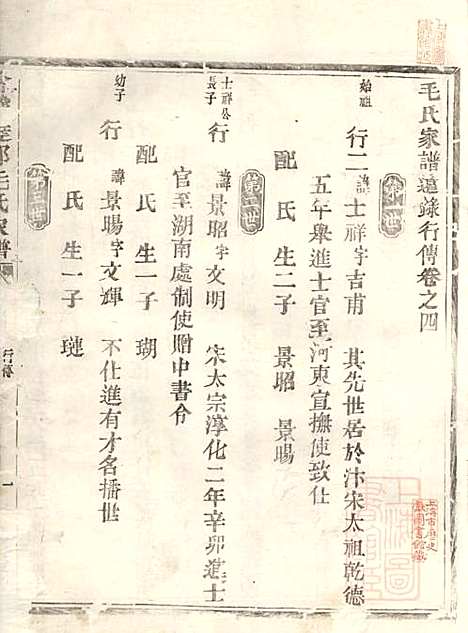 毛氏家譜遠錄行傳卷之四
第一世
始祖 行二 諱士祥字吉甫 其先世居於汴宋太祖乾德
五年舉進士官至河東宣撫使致仕
配 氏 生二子 景昭 景暘
第二世
士祥公長子 行 諱景昭字文明 宋太宗淳化二年辛卯進士
官至湖南處制使贈中書令
配 氏 生一子 瑚
幼子 行 諱景暘字文輝 不仕進有才名播世
配 氏 生一子 璉
第三世
毛氏家譜
行傳
一
上海市歷史
圖書館藏